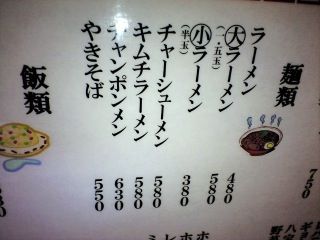 麺類
ラーメン 480
大ラーメン (一・五玉) 580
小ラーメン (半玉) 380
チャーシューメン 580
キムチラーメン 580
チャンポンメン 630
やきそば 550
飯類
750